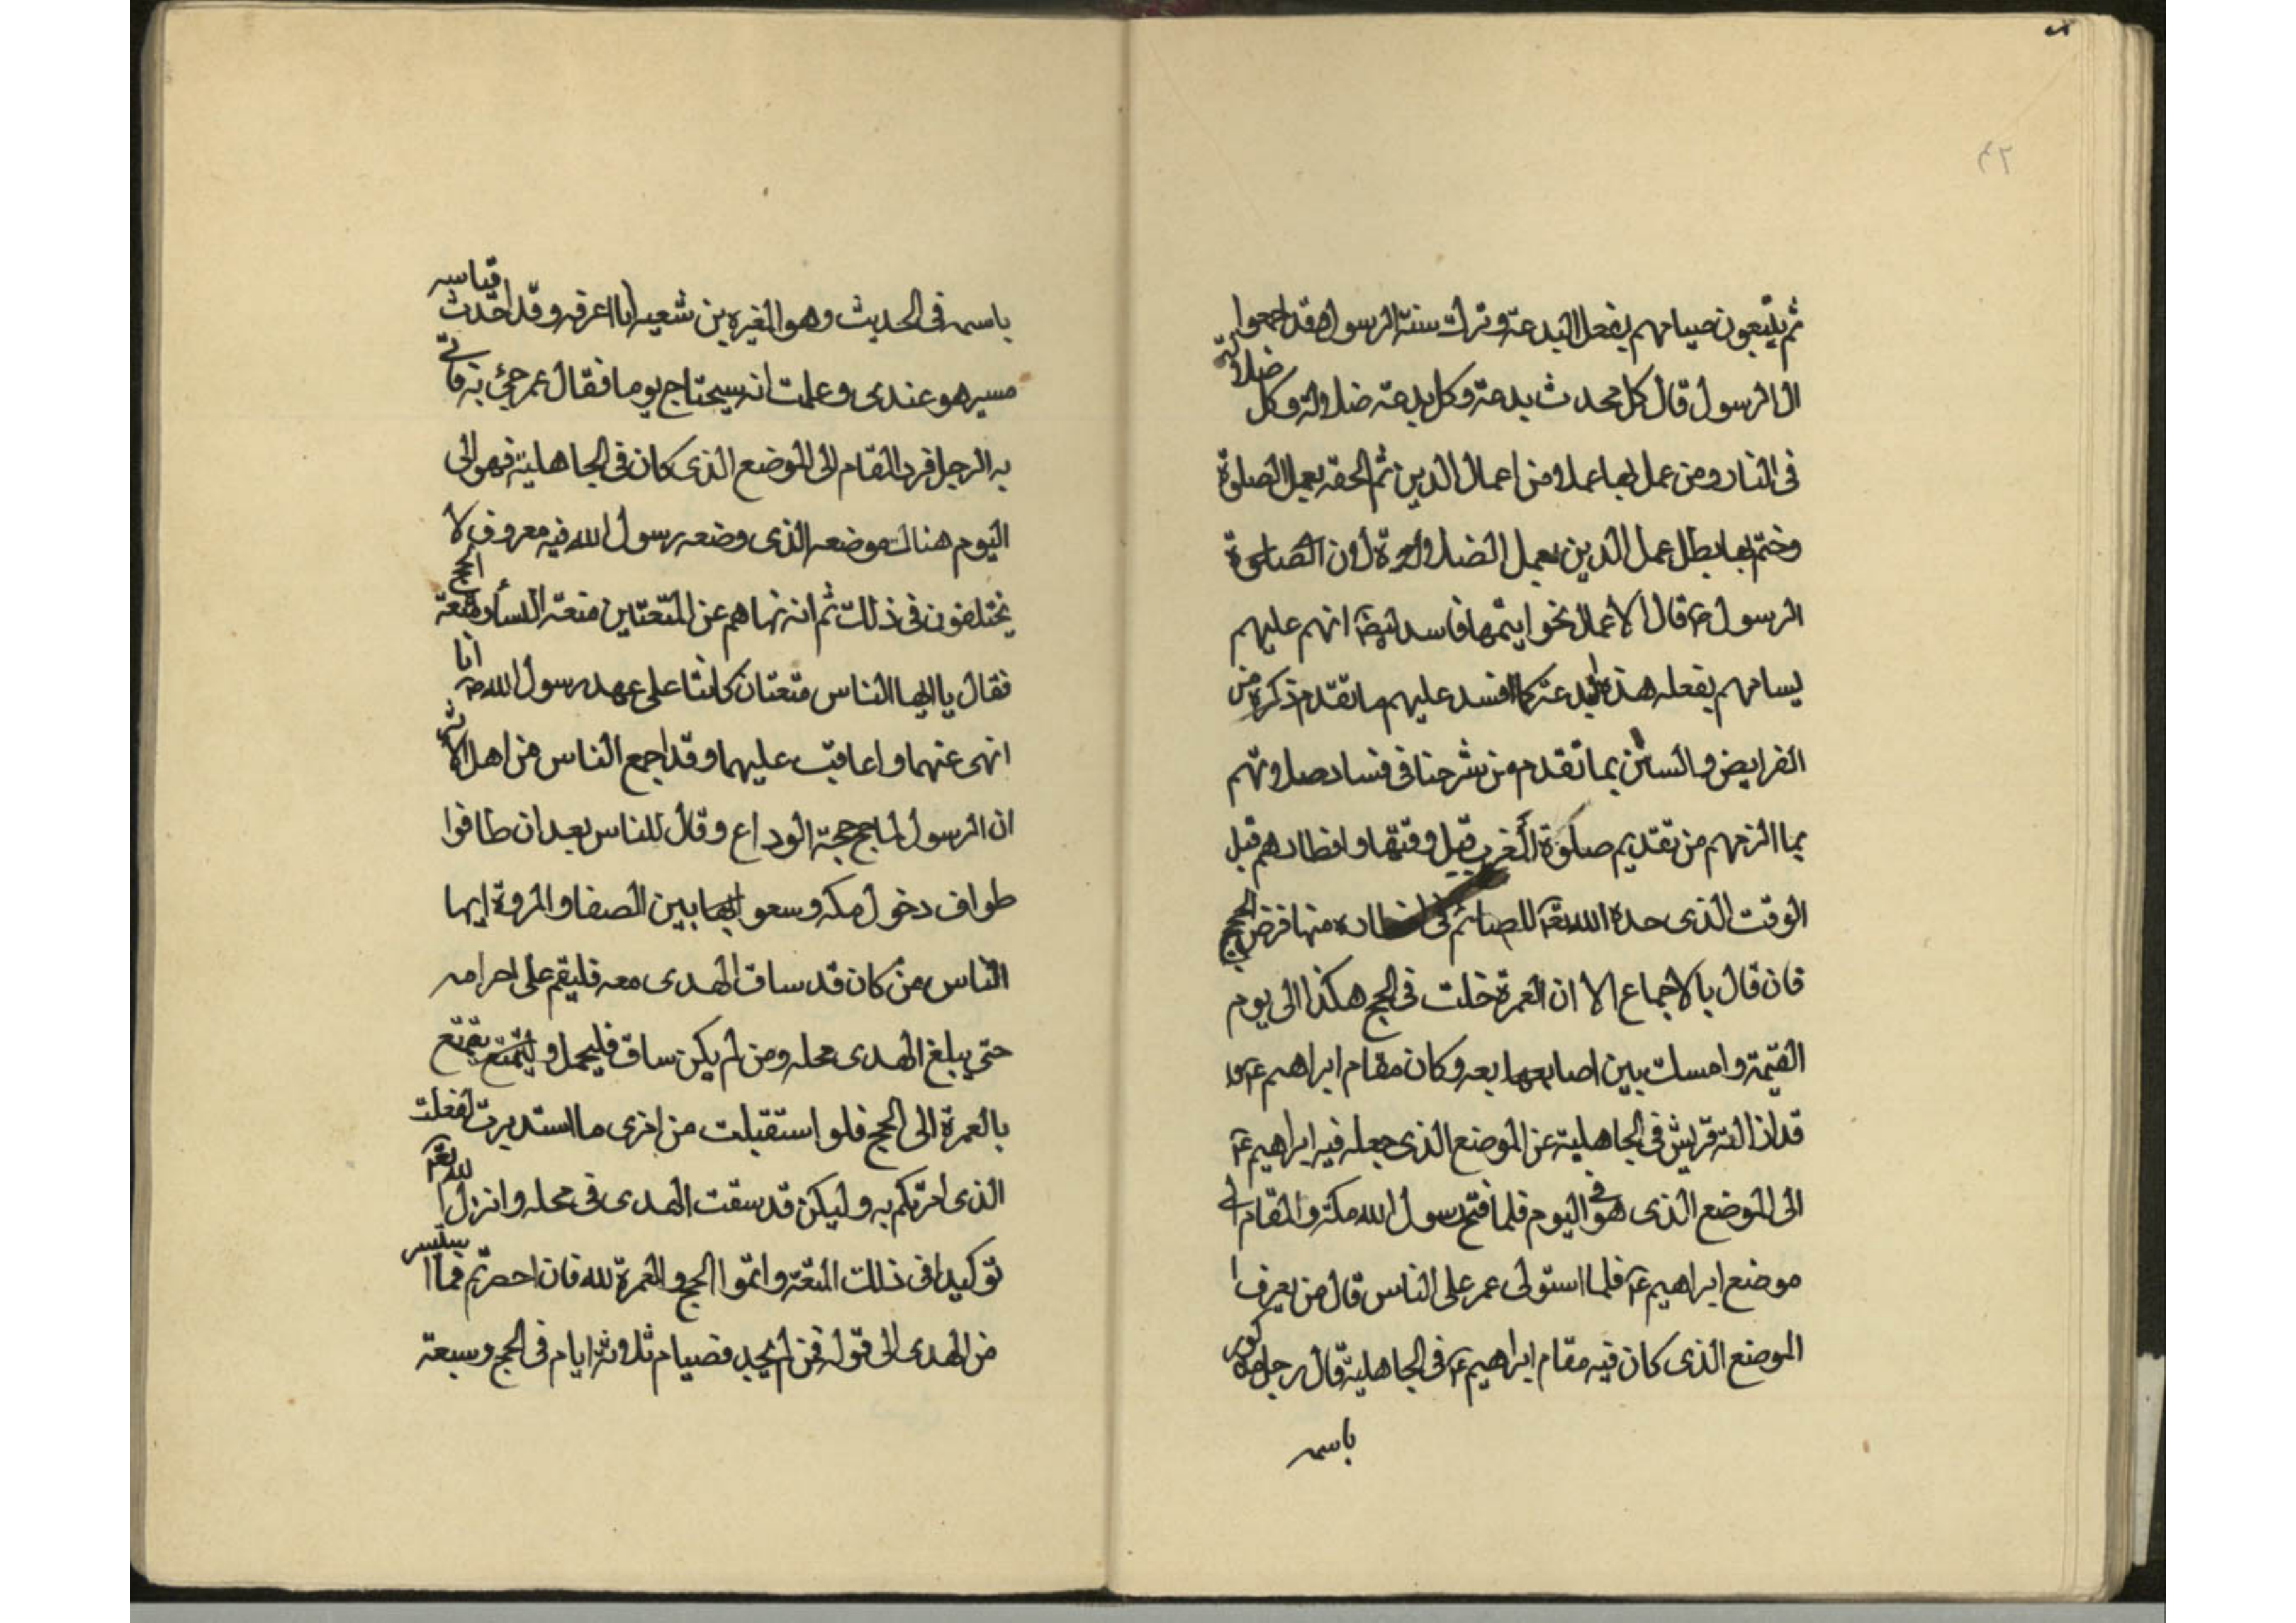 ثم يتبعون صيامهم بفعل البدعة وترك سنة الرسول ص وقد اجمعوا
ان الرسول قال كل محدث بدعة وكل بدعة ضلولة وكل ضلالة
فى النار ومن عمل بها عملا من اعمال الدين ثم الحقه بعمل الصلوة
وختم بها بطل عمل الدين بعمل الضلولة لان
الرسول ص قال الاعمال بخواتيمها فاسد انهم عليهم
بفعله هذه البدعة كما افسد عليهم ما تقدم ذكره من
الفرايض والسنن بما تقدم من شرحنا فى فساد صلوتهم
بما الزمهم من تقديم صلوة المغرب قبل وقتها وافطارهم قبل
الوقت الذى حده الله تعالى للصائم فى افطاره منها فرض الحج
فان قال بالاجماع الا ان العمرة دخلت فى الحج هكذا الى يوم
القيمة وامسك بين اصابعه وكان مقام ابراهيم ع
قد ازالته قريش فى الجاهلية عن الموضع الذى جعله فيه ابراهيم ع
الى الموضع الذى هو فى اليوم فلما فتح رسول الله مكة رد المقام الى
موضع ابراهيم ع فلما استولى عمر على الناس قال من يعرف
الموضع الذى كان فيه مقام ابراهيم ع فى الجاهلية قال رجل مذكور
باسمه
باسمه فى الحديث وهو المغيره بن شعبه انا اعرفه وقد اخذت قياسه
مسير هو عندى وعلمت انه سيحتاج يوما فقال عمر جئ به فاتى
به الرجل فرد المقام الى الموضع الذى كان فى الجاهلية فهو الى
اليوم هناك موضعه الذى وضعه رسول الله فيه معروف لا
يختلفون فى ذلك ثم انه نهاهم عن المتعتين متعة النساء ومتعة الحج
فقال يا ايها الناس متعتان كانتا على عهد رسول الله ص انا
انهى عنهما واعاقب عليهما وقد اجمع الناس من اهل الاثر
ان الرسول لما حج حجة الوداع وقال للناس بعد ان طافوا
طواف دخول مكه وسعوا بها بين الصفا والمروة ايها
الناس من كان قد ساق الهدى معه فليقم على احرامه
حتى يبلغ الهدى محله ومن لم يكن ساق فليحل وليتمتع يتمتع
بالعمرة الى الحج فلو استقبلت من امرى ما استدبرت لفعلت
الذى امرتكم به وليكن قد سقت الهدى فى محله وانزل الله تعالى
توكيدا فى ذلك المتعة واتموا الحج والعمرة لله فان احصرتم فما استيسر
من الهدى الى قوله فمن لم يجد فصيام ثلوثة ايام فى الحج وسبعة